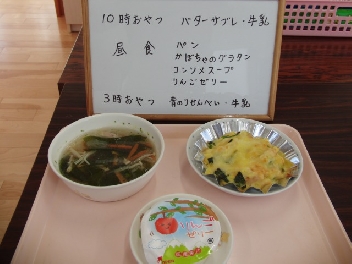 10時おやつ バターサブレ・牛乳
昼食 パン
かぼちゃのグラタン
コンソメスープ
りんごゼリー
3時おやつ 青のりせんべい・牛乳
りんご
ゼリー